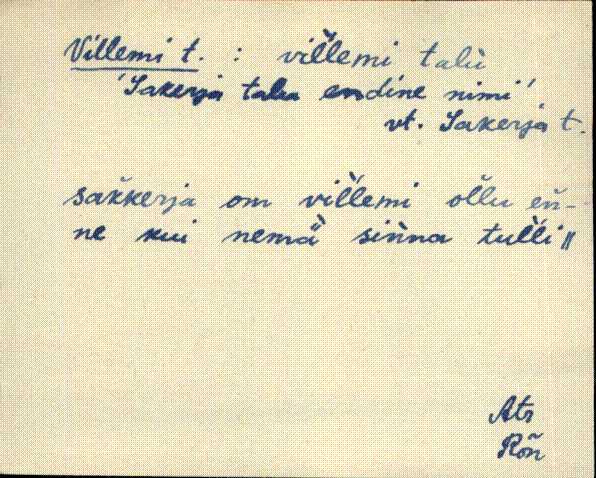 Villemi t. : vil̆lemi talù
'Sakerja talu endine nimi'
vt. Sakerja t.
sak̆kerja om vil̆lemi ol̆lu en̆-
ne kui nemä̀ sin̆na tul̆li ||
Ats
Rõn